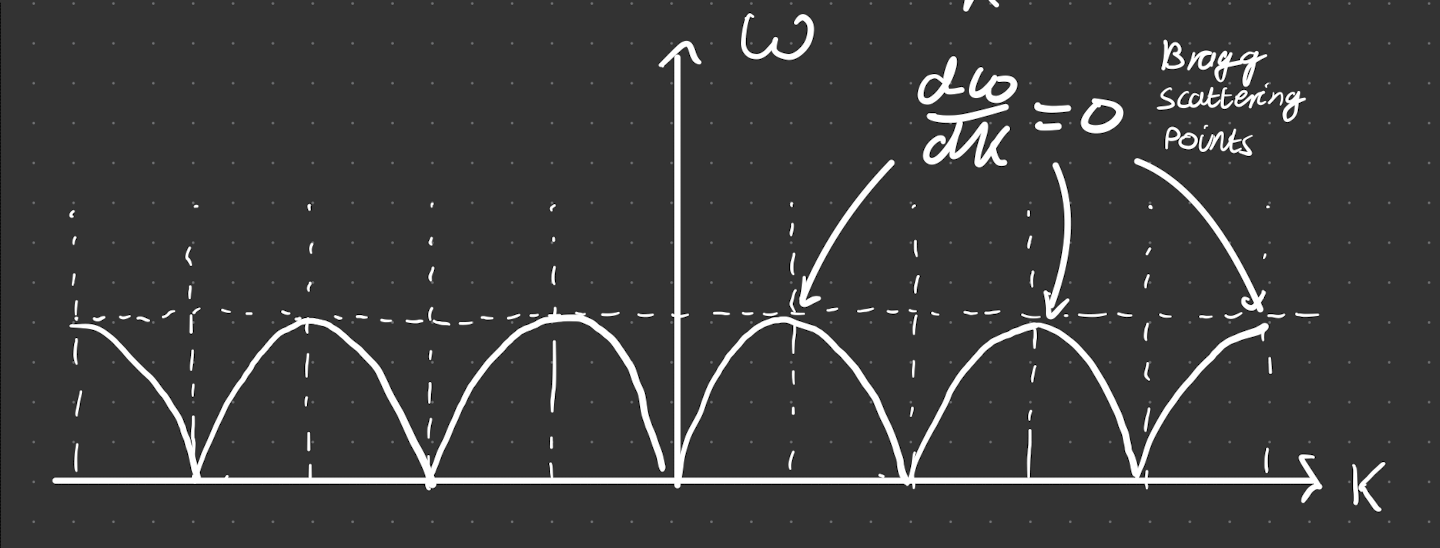 ω
dω/dk = 0
Bragg
scattering
points
K